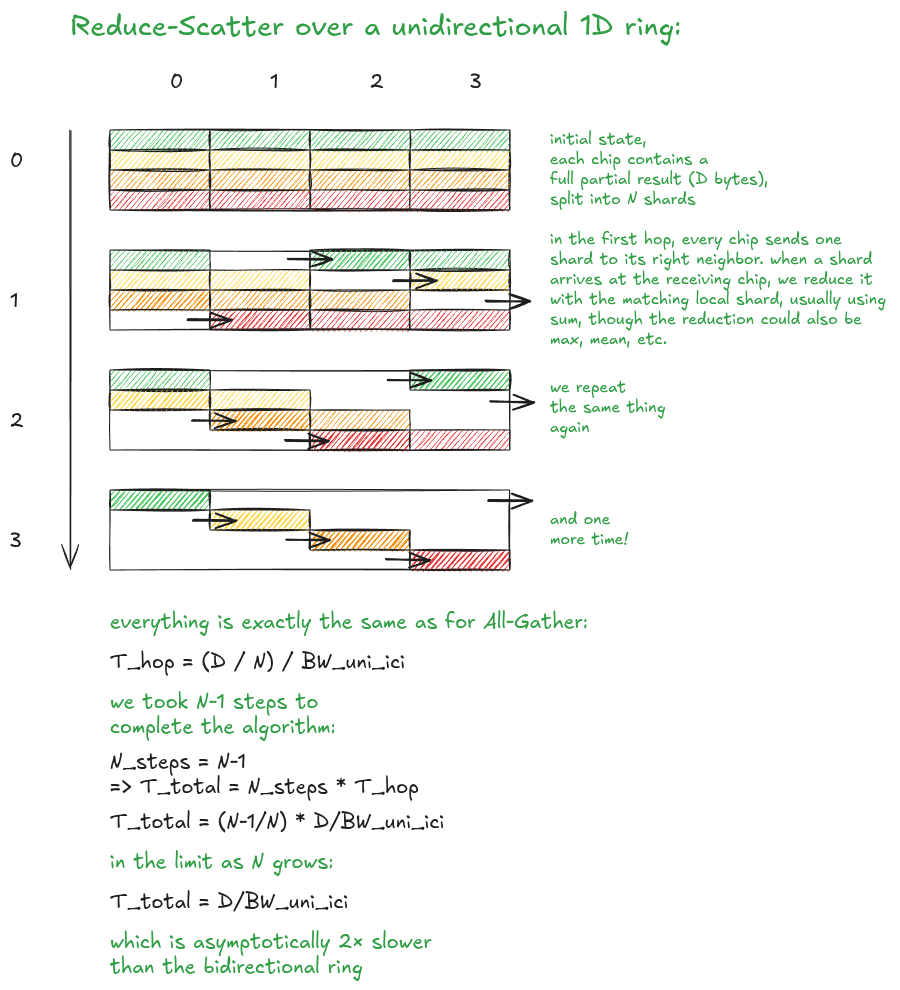 Reduce-Scatter over a unidirectional 1D ring:
0 1 2 3
0
initial state,
each chip contains a
full partial result (D bytes),
split into N shards
1
in the first hop, every chip sends one
shard to its right neighbor. when a shard
arrives at the receiving chip, we reduce it
with the matching local shard, usually using
sum, though the reduction could also be
max, mean, etc.
2
we repeat
the same thing
again
3
and one
more time!
everything is exactly the same as for All-Gather:
T_hop = (D / N) / BW_uni_ici
we took N-1 steps to
complete the algorithm:
N_steps = N-1
=> T_total = N_steps * T_hop
T_total = (N-1/N) * D/BW_uni_ici
in the limit as N grows:
T_total = D/BW_uni_ici
which is asymptotically 2x slower
than the bidirectional ring